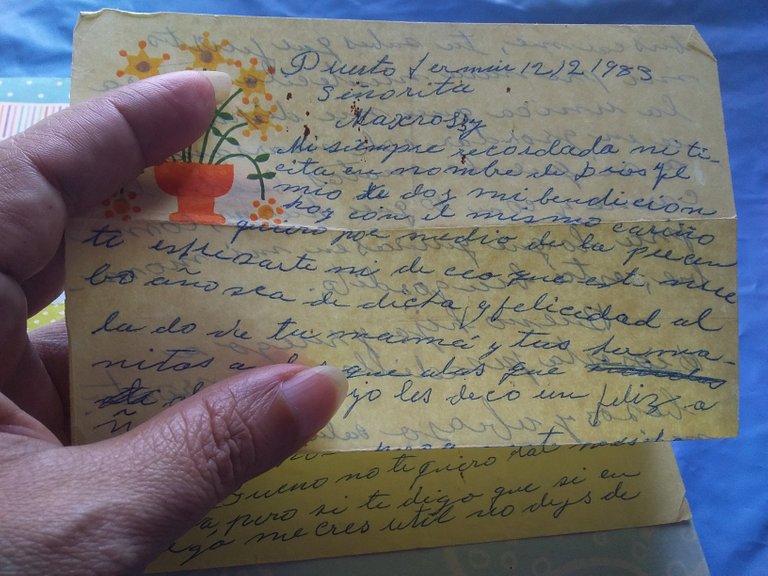 Puerto Fermin 12/2 1983
Señorita
Maxrossy
Mi siempre recordada ni ti-
cita en nombre de Dios y el
mio te doy mi bendición
hoy con el mismo cariño
quiero por medio de la precen
te espresarte mi deceo que este nue
bo año sea de dicha y felicidad al
lado de tu mamá y tus herma-
nitos a los que alas que
yo les deceo un feliz a
ñ
Bueno no te quiero dar
pero si te digo que si en
me cres util no dejs de